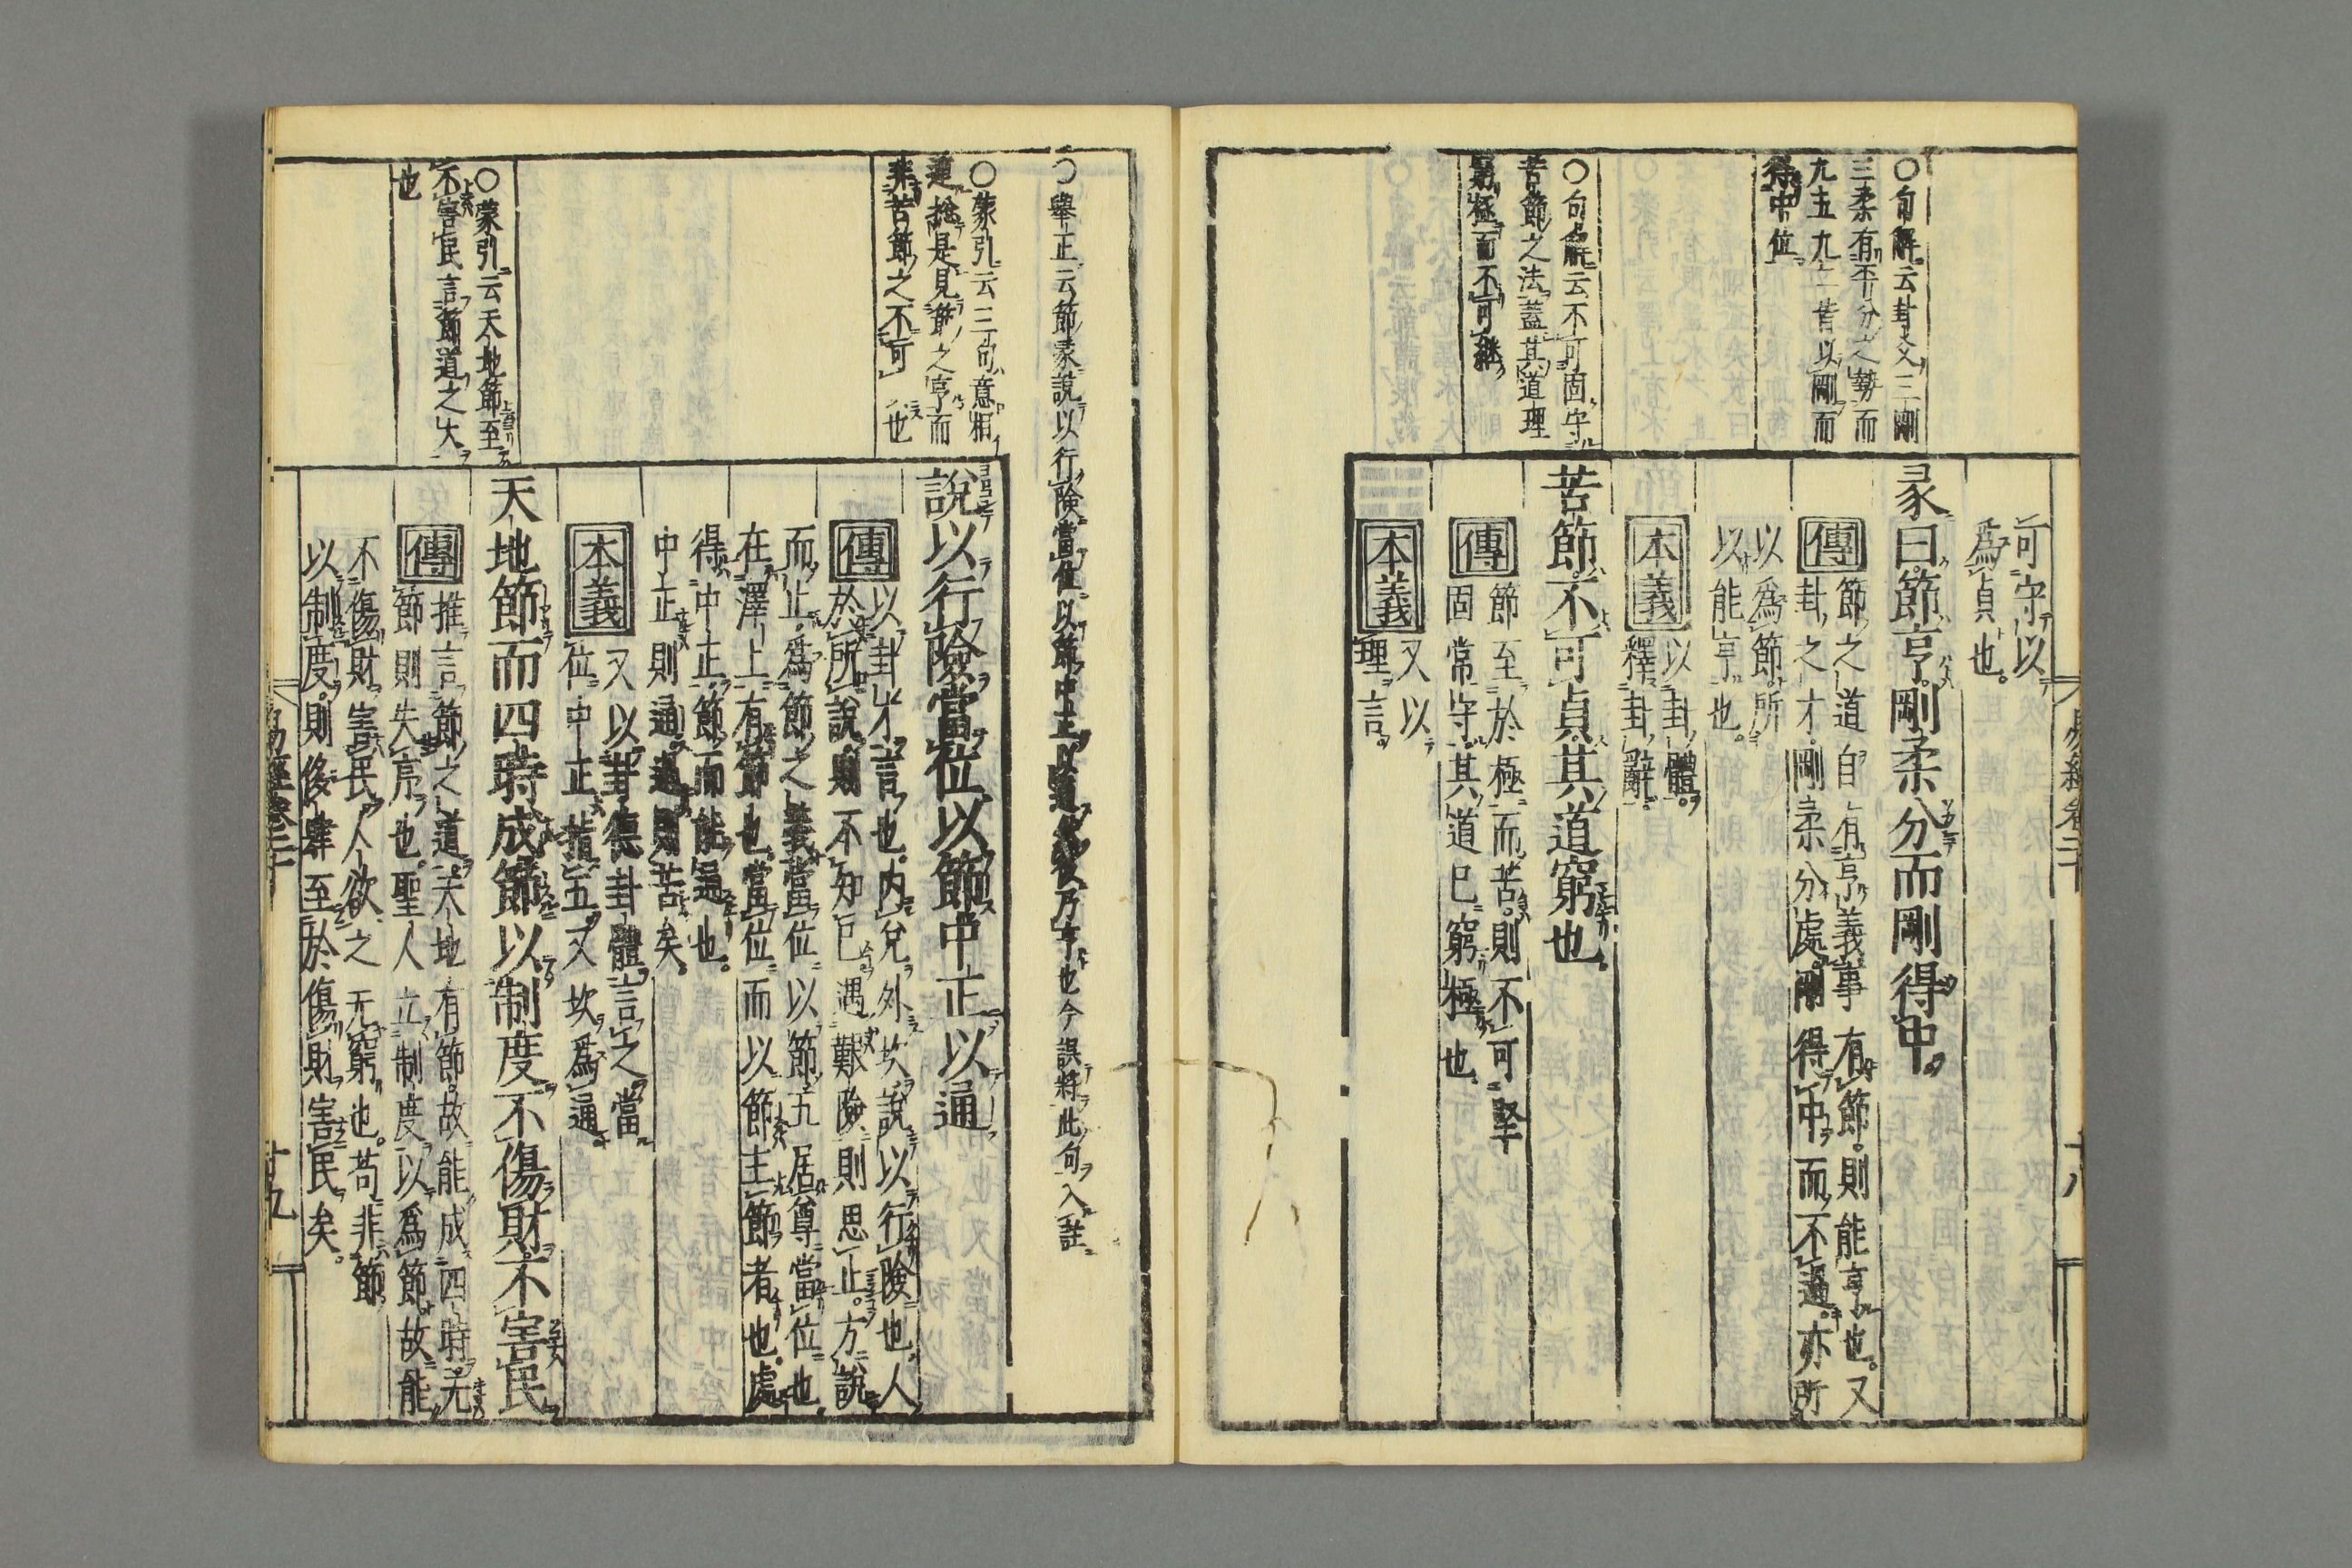 可守以
爲貞也。
彖曰。節亨。剛柔分而剛得中。
傳
節之道自有亨義事有節則能亨也。又
卦之才。剛柔分處。剛得中而不過。亦所
以爲節。所
以能亨也。
本義
以卦體。
釋卦辭。
苦節不可貞。其道窮也。
傳
節至於極而苦。則不可堅
固常守。其道已窮極也。
本義
又以
理言。
〇句解云卦爻三剛
三柔有平分之勢而
九五九二皆以剛而
得中位
〇句解云不可固守
苦節之法蓋其道理
窮極而不可繼
十八
〇舉正云節彖說以行險當位以節中正以通然後乃亨也今誤將此句入註
說以行險當位以節中正以通
傳
以卦才言也。內兌外坎。說以行險也。人
於所說則不知已。遇艱險則思止。方說
而止。爲節之義。當位以節。五居尊當位也
在澤上有節也。當位而以節。主節者也。處
得中正節而能通也。
中正則通。過則苦矣。
本義
又以卦德卦體言之。當
位中正。指五。又坎爲通。
天地節而四時成。節以制度不傷財。不害民
傳
推言節之道。天地有節。故能成四時。无
節則失亨也。聖人立制度以爲節。故能
不傷財害民。人欲之无窮也。苟非節
以制度。則侈肆至於傷財害民矣。
〇蒙引云三句意相
連抢是見節之亨而
非苦節之不可也
〇蒙引云天地節至
不害民言節道之大
也
易經卷二十
十九